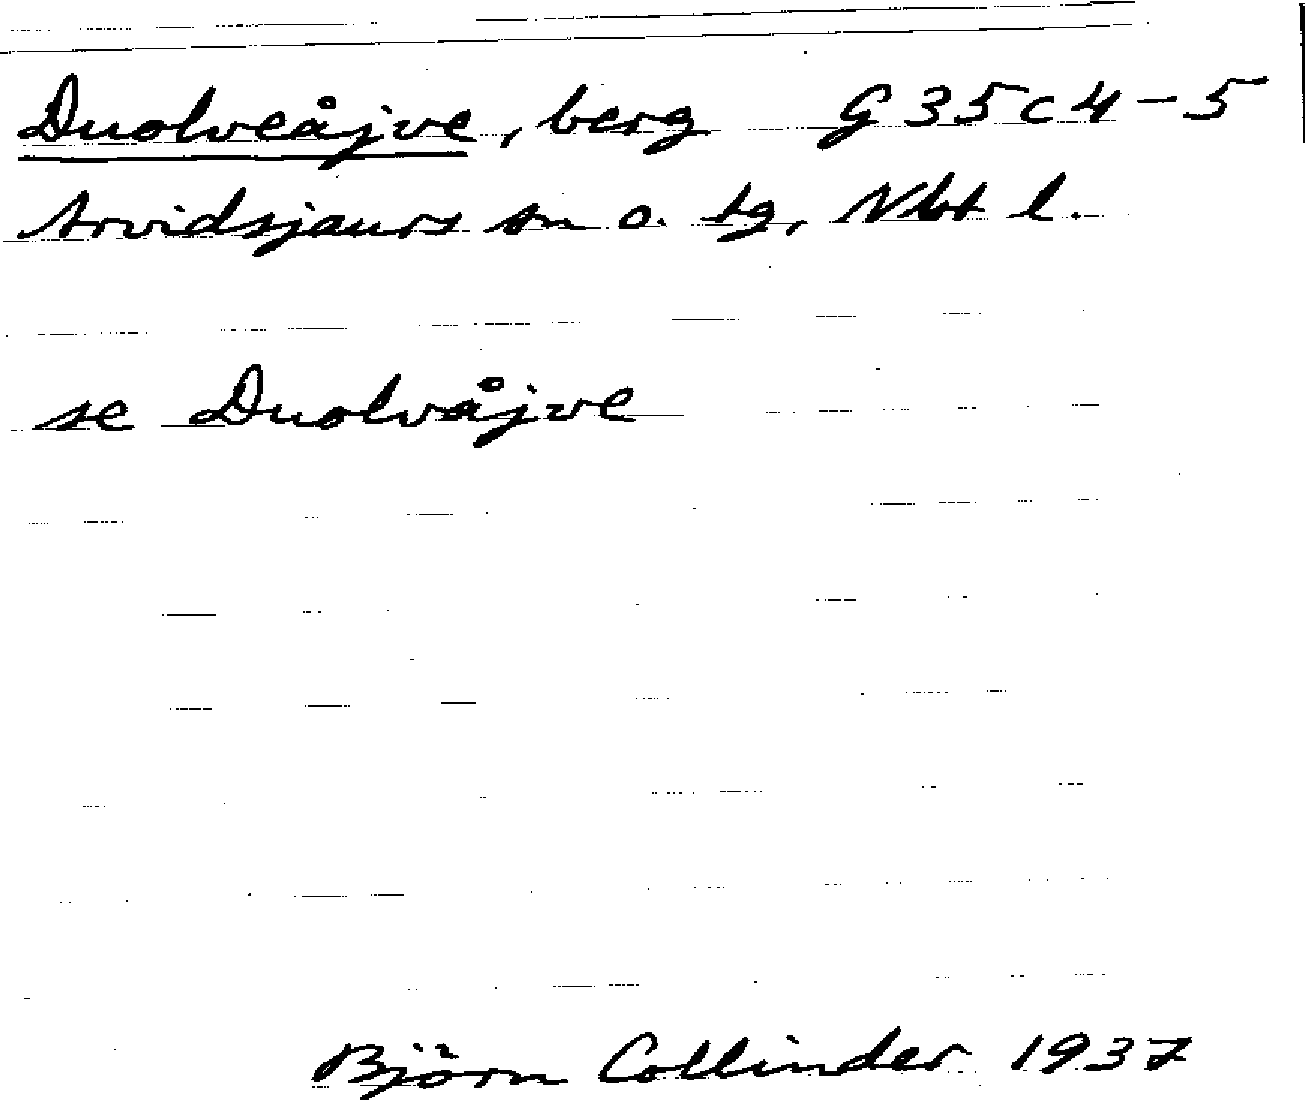 Duolveåjve, berg G 35 c 4-5
Arvidsjaurs sn o. tg, Nbt l.
se Duolvåjve
Björn Collinder 1937